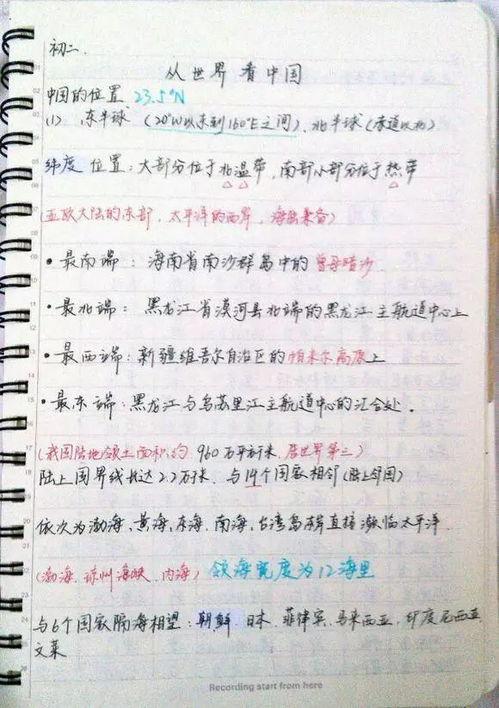 初二.
从世界看中国
中国的位置 23.5°N
(1) 东半球 (20°W以东到160°E之间), 北半球(赤道以北)
纬度位置: 大部分位于北温带, 南部小部分位于热带
(亚欧大陆的东部, 太平洋的西岸, 海陆兼备)
• 最南端: 海南省南沙群岛中的曾母暗沙.
• 最北端: 黑龙江省漠河县北端的黑龙江主航道中心上
• 最西端: 新疆维吾尔自治区的帕米尔高原上
• 最东端: 黑龙江与乌苏里江主航道中心的汇合处.
(我国陆地领土面积约 960万平方千米, 居世界第三)
陆上国界线长达2.2万千米, 与14个国家相邻(陆上邻国)
依次为渤海, 黄海, 东海, 南海, 台湾岛东岸直接濒临太平洋.
(渤海, 琼州海峡, 内海) 领海宽度为12海里
与6个国家隔海相望: 朝鲜 日本, 菲律宾, 马来西亚, 印度尼西亚,
文莱
Recording start from here